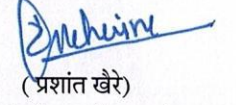 ( प्रशांत खैरे)